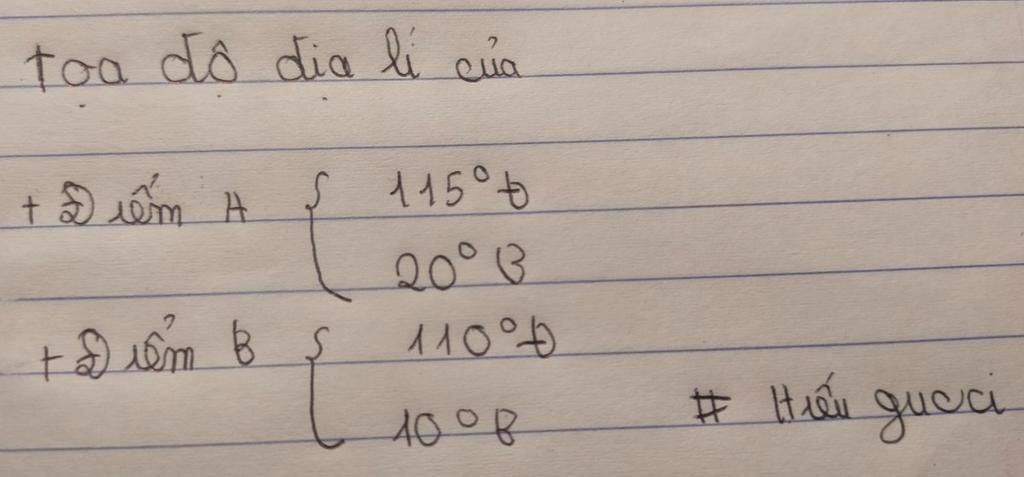 tọa độ địa lí của
+ Điểm A { 115° Đ
20° B
+ Điểm B { 110° Đ
10° B # Hiếu gucci